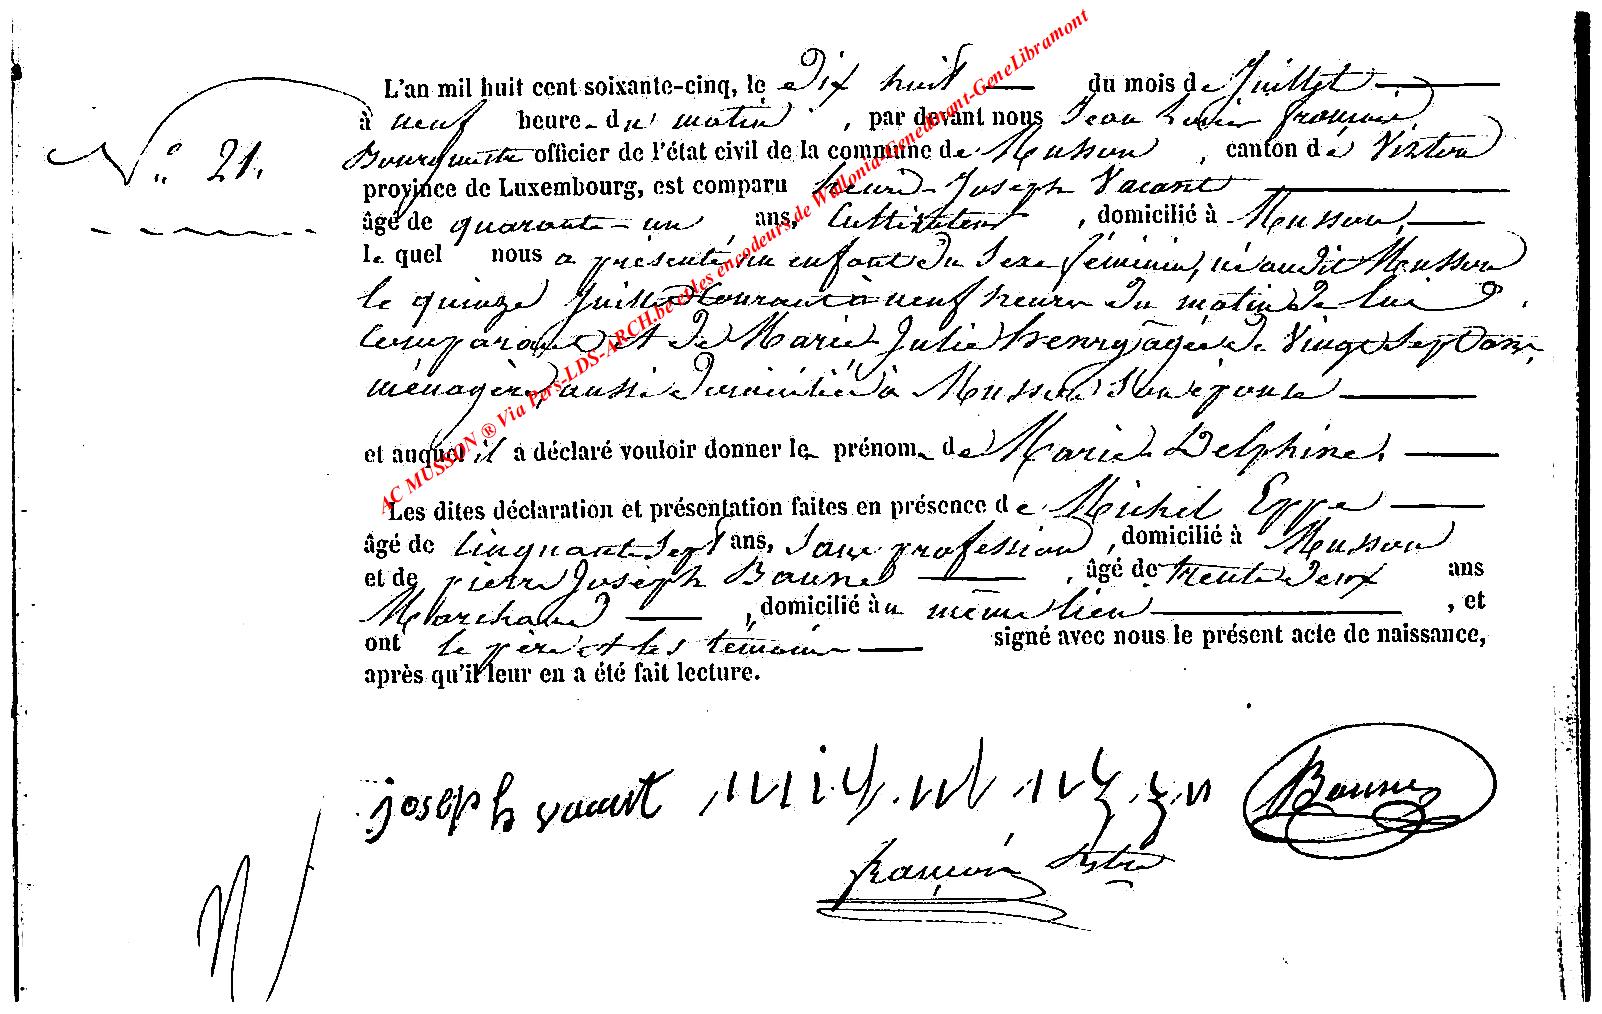 L'an mil huit cent soixante-cinq, le dix huit du mois de Juillet
à neuf heure du matin, par devant nous Jean françois
N° 21. officier de l'état civil de la commune de Musson, canton de Virton
province de Luxembourg, est comparu henri Joseph Vacant
âgé de quarante-un ans, Cultivateur, domicilié à Musson,
le quel nous a présenté un enfant du Sexe féminin, né audit Musson
le quinze Juillet Courant à neuf heures du matin de lui
Comparant et de Marie Julie henry âgée de Vingt Sept ans,
ménagère, aussi domiciliée à Musson Son épouse
et auquel il a déclaré vouloir donner le prénom de Marie Delphine.
Les dites déclaration et présentation faites en présence de Michel Eppe
âgé de Cinquante Sept ans, Sans profession, domicilié à Musson
et de pierre Joseph Baune, âgé de trente deux ans
Marchand, domicilié au même lieu, et
ont le père et les témoins signé avec nous le présent acte de naissance,
après qu'il leur en a été fait lecture.
joseph vacant Baune
françois
AC MUSSON ® Via Pers-LDS-ARCH.be et les encodeurs de Wallonia-Genedinant-GeneLibramont